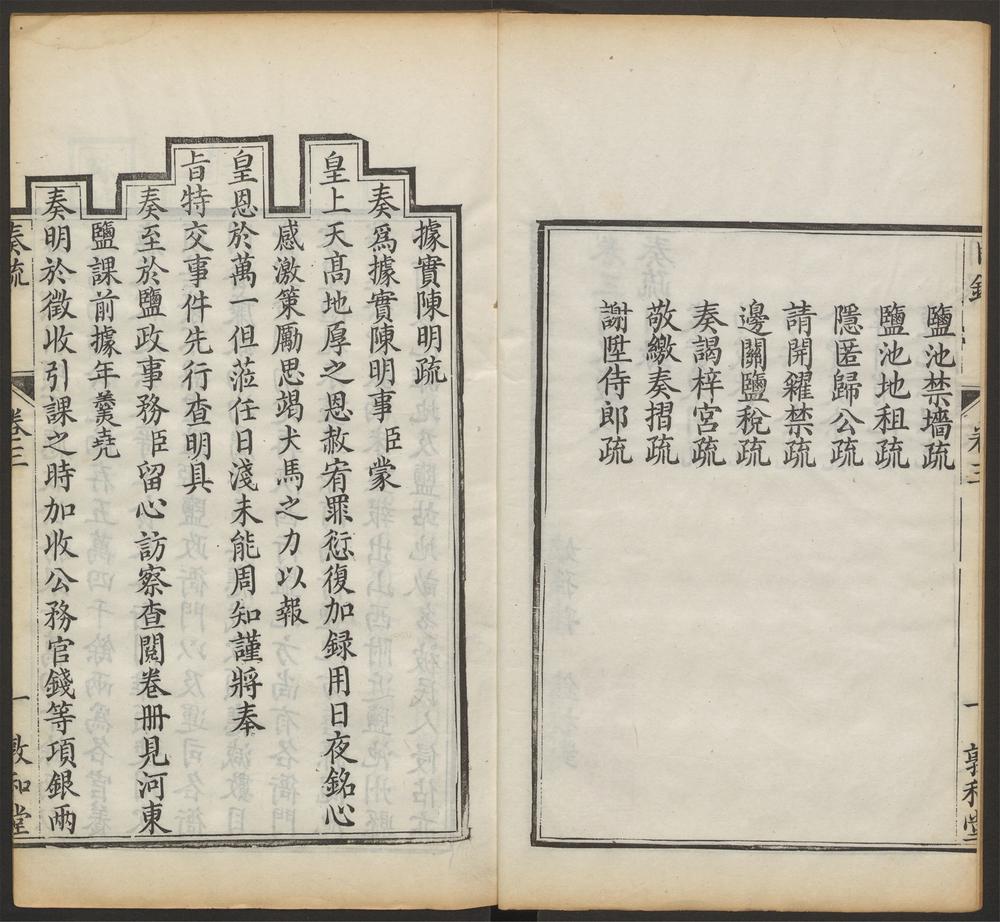 鹽池禁墻疏
鹽池地租疏
隱匿歸公疏
請開糴禁疏
邊關鹽稅疏
奏謁梓宮疏
敬繳奏摺疏
謝陞侍郎疏
目錄
卷三
一
敦和堂
據實陳明疏
奏爲據實陳明事臣蒙
皇上天高地厚之恩赦宥罪愆復加録用日夜銘心
感激策勵思竭犬馬之力以報
皇恩於萬一但蒞任日淺未能周知謹將奉
旨特交事件先行查明具
奏至於鹽政事務臣留心訪察查閱卷冊見河東
鹽課前據年羹堯
奏明於徵收引課之時加收公務官錢等項銀兩
奏疏
卷三
一
敦和堂